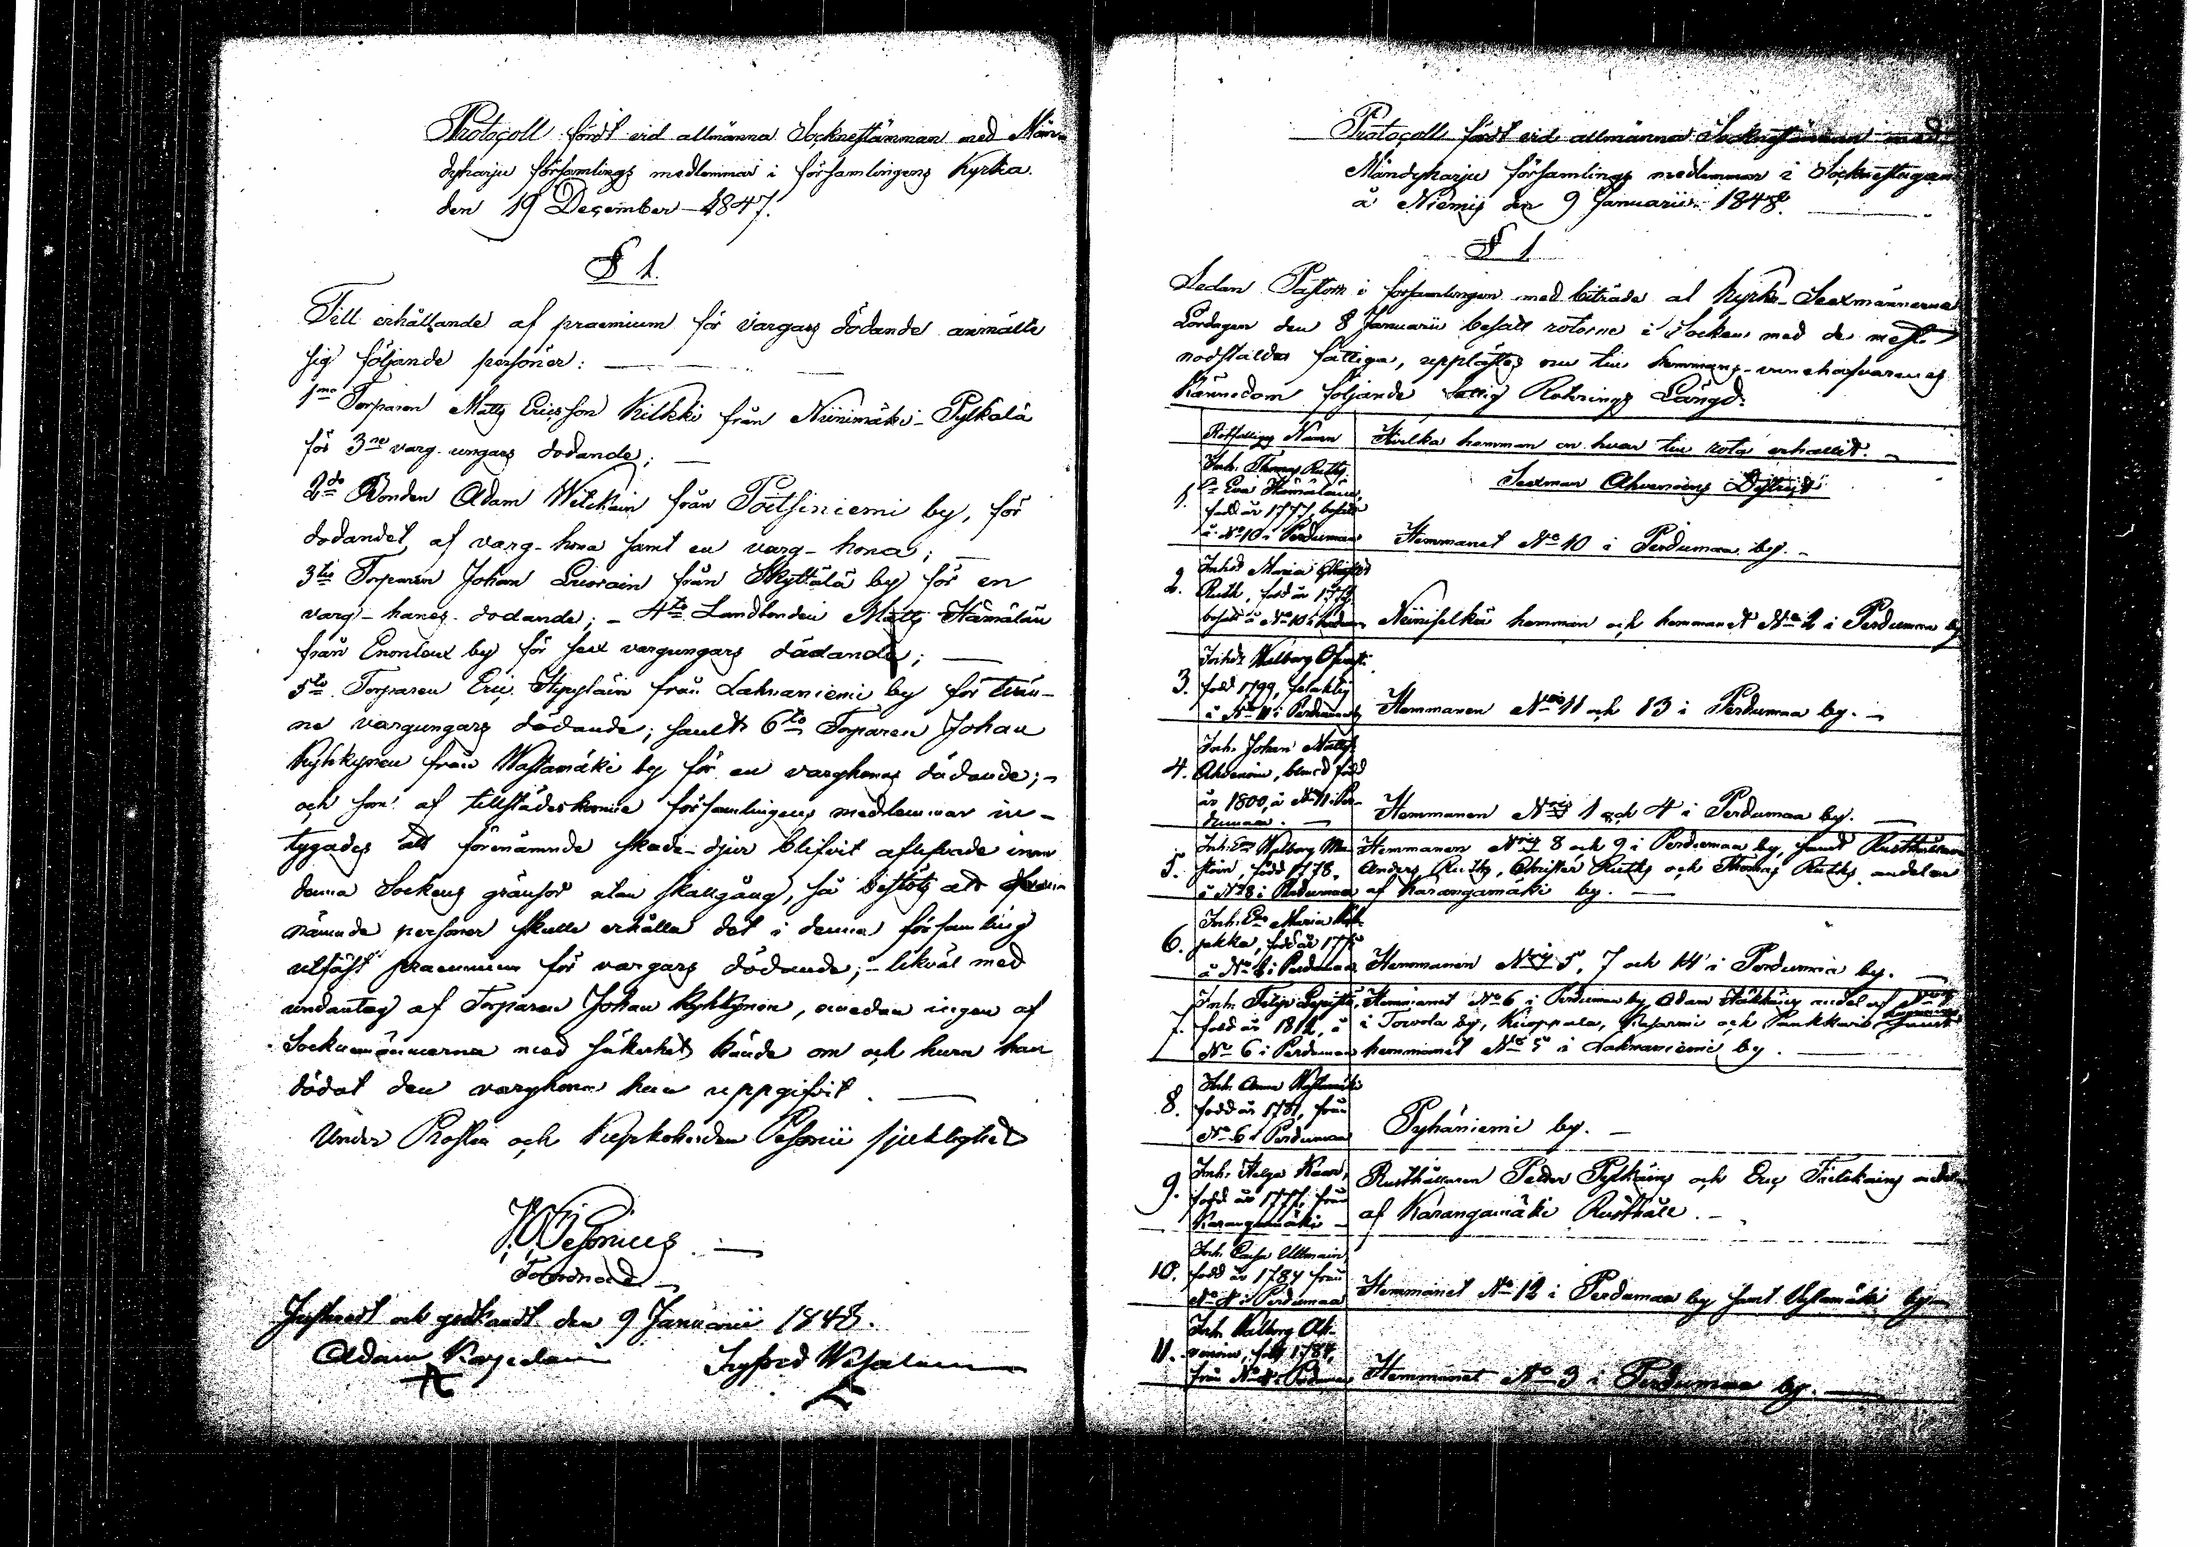 Protocoll fördt vid allmänna Socknestämman med Män-
dyharju församlings medlemmar i församlingens Kyrka
den 19 December 1847.
§ 1.
Till erhållande af praemium för vargars dödande anmälte
sig följande personer:
1mo Torparen Matts Ericsson Kilkki från Niinimäki-Pylkälä
för 3ne varg-ungars dödande;
2do Bonden Adam Weickain från Poitsiniemi by, för
dödandet af varg-hona samt en varg-hona;
3tio Torparen Johan från Skyttälä by för en
varg-hanes dödande; - 4to Landbonden Matts Hämäläin
från Enonlax by för sex vargungars dödande;
5to Torparen Eric från Lahnaniemi by för tvän-
ne vargungars dödande; samt 6to Torparen Johan
Kyhkynen från Wastamäki by för en varghonas dödande;
och som af tillstädeskomne församlingens medlemmar in-
tygades att förenämnde skade-djur blifvit aflifvade inom
denna Sockens gränsor utan skallgång, så beslöts att ofvan-
nämnde personer skulle erhålla det i denna församling
utfäst praemium för vargars dödande; - likväl med
undantag af Torparen Johan Kyhkynen, emedan ingen af
Socknemännerna med säkerhet kände om och huru han
dödat den varghona han uppgifvit.
Under Prosten och Kyrkoherden Pesonii sjuklighet
J. W. Pesonius
Justerat och godkändt den 9 Januarii 1848.
Adam
Sigfred
Protocoll fördt vid allmänna Socknestämman med
Mändyharju församlings medlemmar i Socknestugan
å Niemis den 9 Januarii 1848.
§ 1
Sedan Pastorn i församlingen med biträde af Kyrko-Sexmännerna
Lördagen den 8 Januarii besatt rotorne i Socken med de mest
nödstälda fattiga, upplästes nu till hemmans-innehafvarenes
kännedom följande Fattig Roterings Längd:
Rotfattigas Namn Hvilka hemman en hvar till rota erhållit.
Sexman Ahvenains District
1. Inh. Thomas Ruths
Ea Eva Hämäläinen,
född år 1777, besatt
å No 10 i Perdumaa Hemmanet No 10 i Perdumaa by.
2. Inhes Maria
Ruth, född år
besatt å No 10 Niiniselkä hemman och hemmanet No 2 i Perdumaa by
3. Inhes Walborg
född 1799,
å No 11 i Perdumaa Hemmanen Nris 11 och 13 i Perdumaa by.
4. Inh. Johan Matts
Ahvenain, blind född
år 1800, å No 11 i Per-
dumaa. Hemmanen Nris 1 och 4 i Perdumaa by.
5. Inh. Ea Walborg Hemmanen Nris 8 och 9 i Perdumaa by, samt Rusthållaren
född 1778, Anders Ruths, Christer Ruths och Thomas Ruths andelar
å No 8 i Perdumaa af Karangamäki by.
6. Inh. Ea Maria
född år
i Perdumaa Hemmanen Nris 5, 7 och 14 i Perdumaa by.
7. Inh. Hemmanet No 6 i Perdumaa by, Adam andel af
född år 1812, å i Towola by, och
No 6 i Perdumaa hemmanet No 5 i Lahnaniemi by.
8. Inh. Anna
född år 1781, från
No 6 i Perdumaa Pyhäniemi by.
9. Inh. Helga Rusthållaren Petter Pylkäins och Eric andelar
född år 1777, från
Karangamäki af Karangamäki Rusthåll.
10. Inh. Caisa Ullmain
född år 1784 från
i Perdumaa Hemmanet No 12 i Perdumaa by samt by
11. Inh. Walborg Ah-
venain, född 1784,
från Hemmanet No 3 i Perdumaa by.